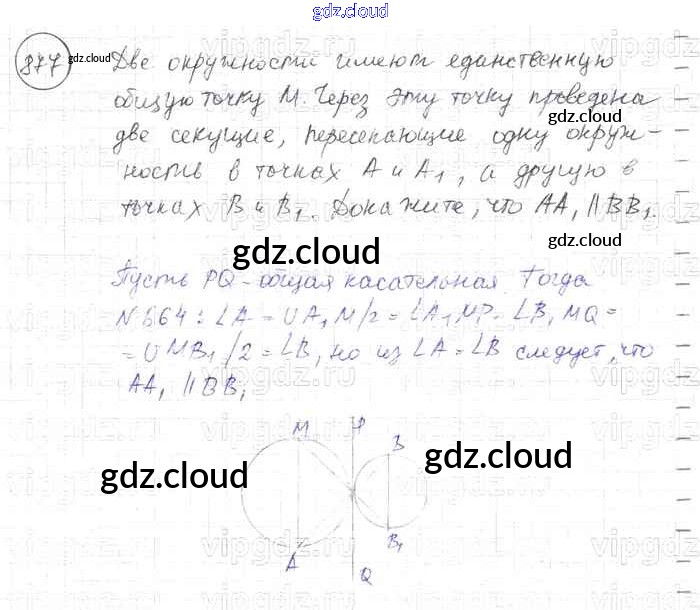 gdz.cloud
877 gdz.cloud Две окружности имеют единственную
общую точку М. Через эту точку проведена
gdz.cloud
две секущие, пересекающие одну окруж-
ность в точках А и А₁, а другую в
точках В и В₁. Докажите, что АА₁ || ВВ₁.
gdz.cloud
gdz.cloud
Пусть PQ - общая касательная. Тогда
N 664: ∠A = ∪A₁M/2 = ∠A₁MP = ∠B₁MQ =
= ∪MB₁/2 = ∠B, но из ∠A = ∠B следует, что
AA₁ || BB₁
M P
B
gdz.cloud gdz.cloud
B₁
A
Q